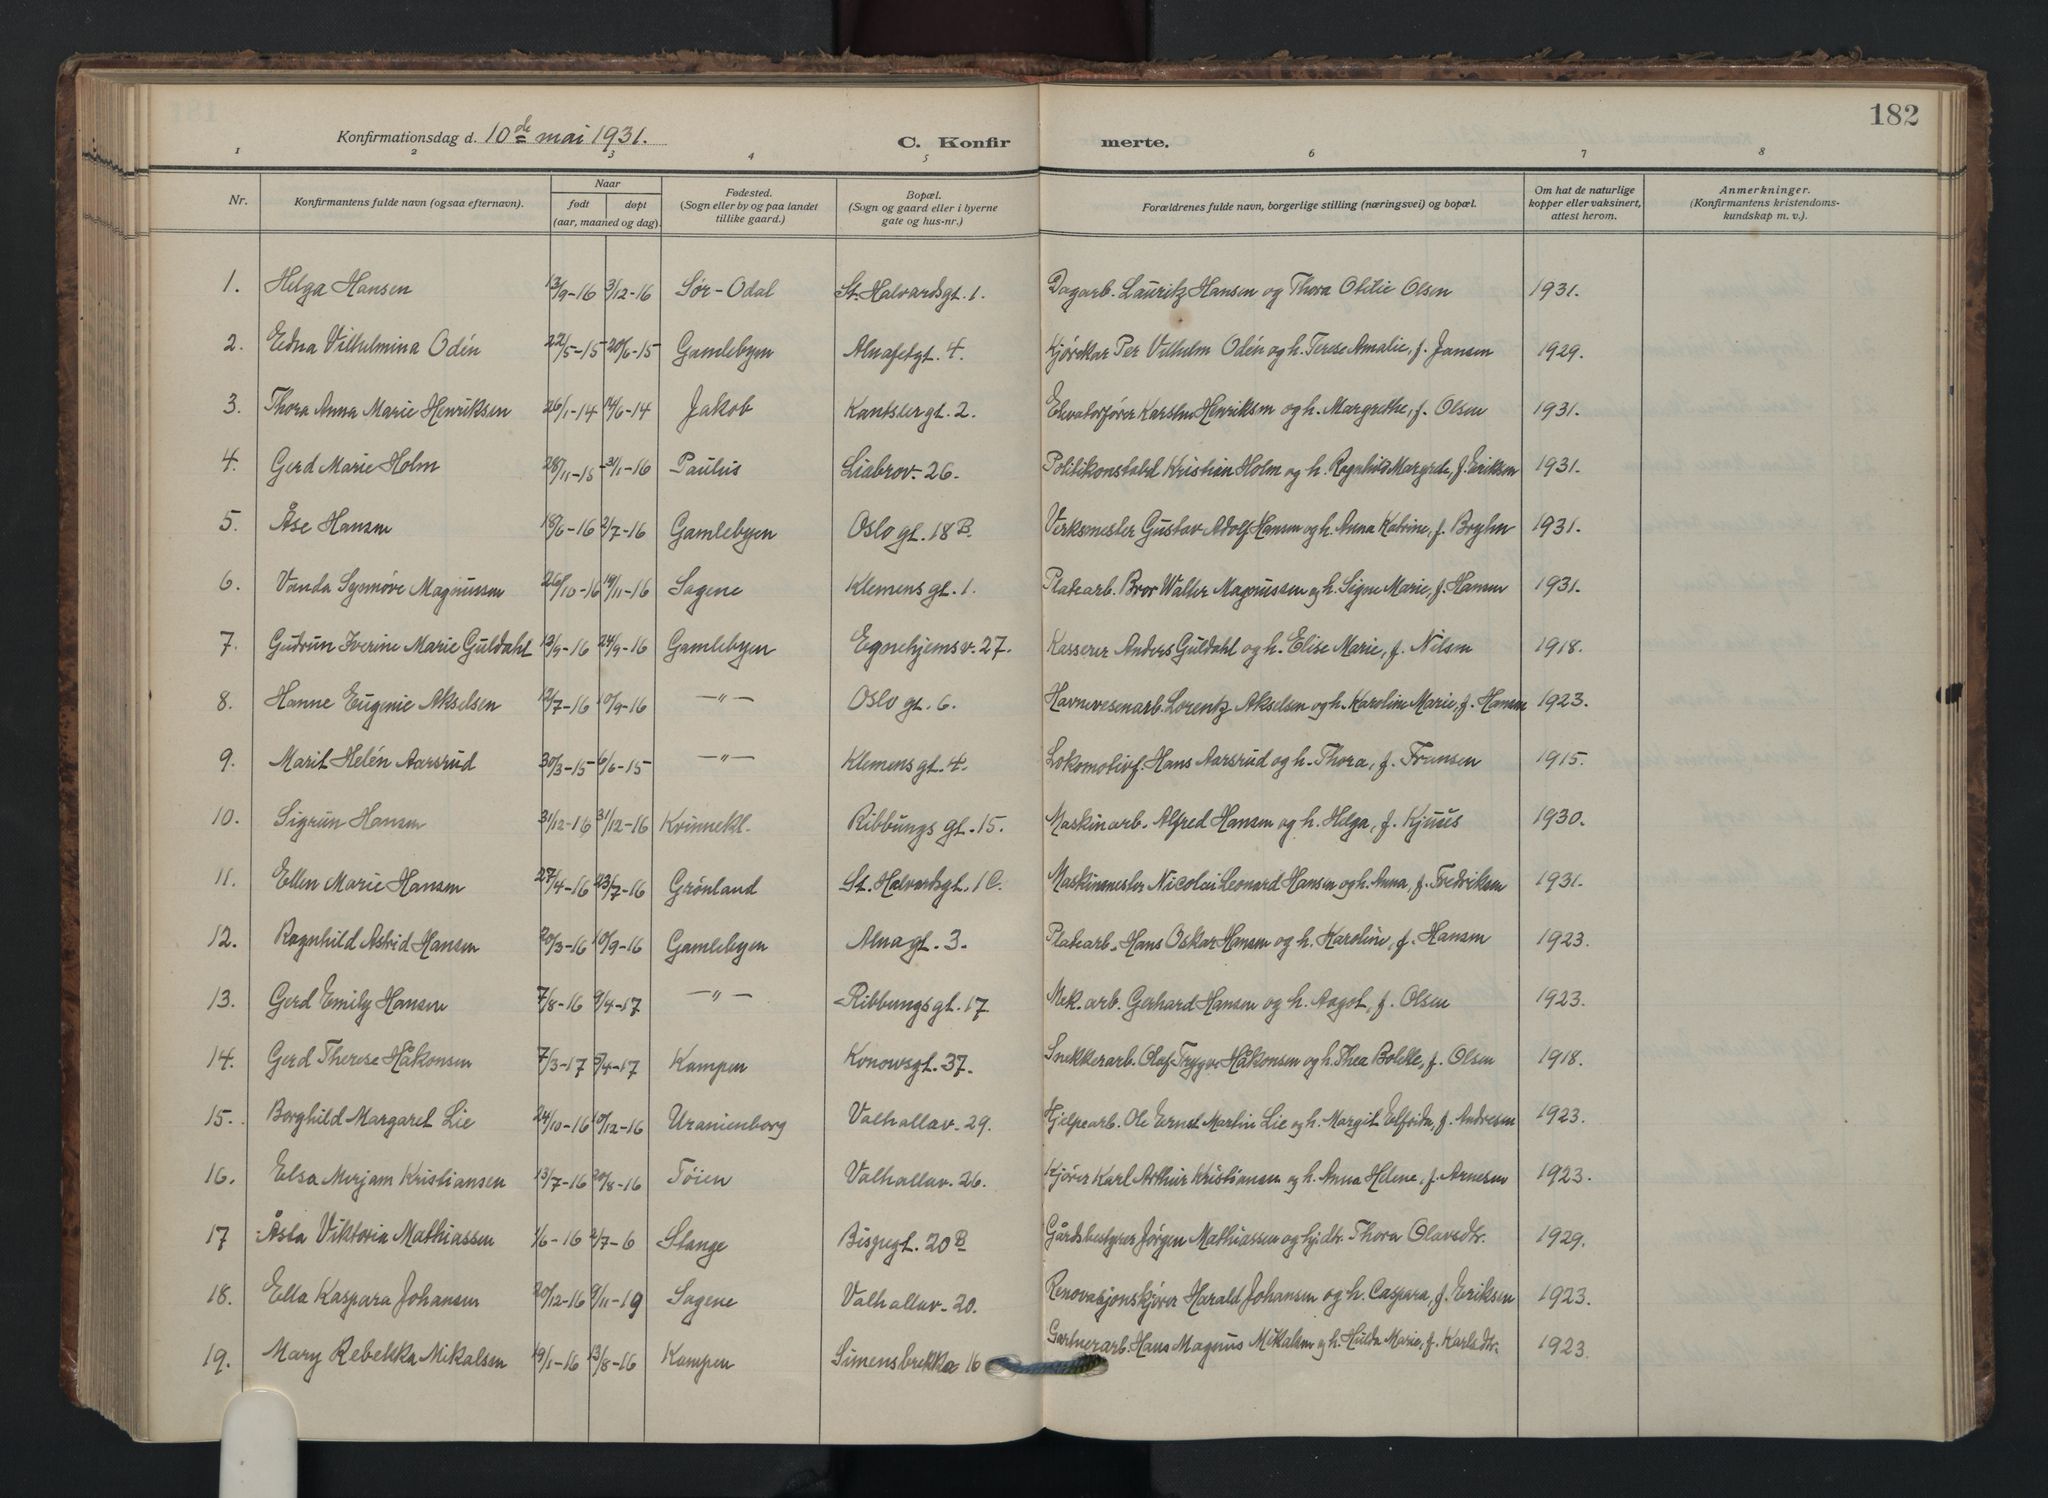 182
Konfirmationsdag d. 10de mai 1931.
C. Konfirmerte.
1 2 3 4 5 6 7 8
Nr. Konfirmantens fulde navn (ogsaa efternavn). Naar født døpt (aar, maaned og dag). Fødested. (Sogn eller by og paa landet tillike gaard.) Bopæl. (Sogn og gaard eller i byerne gate og hus-nr.) Forældrenes fulde navn, borgerlige stilling (næringsvei) og bopæl. Om hat de naturlige kopper eller vaksinert, attest herom. Anmerkninger. (Konfirmantens kristendoms-kundskap m. v.).
1. Helga Hansen 13/9-16 3/12-16 Sør-Odal St. Halvardsgt. 1. Dagarb. Lauritz Hansen og Thora Otilie Olsen 1931.
2. Edna Vilhelmina Odén 22/5-15 20/6-15 Gamlebyen Alnafetgt. 4. Kjørekar Per Vilhelm Odén og h. Terese Amalie, f. Jansen 1929.
3. Thora Anna Marie Henriksen 26/1-14 14/6-14 Jakob Kantslergt. 2. Elevatorfører Karsten Henriksen og h. Margrethe, f. Olsen 1931.
4. Gerd Marie Holm 28/11-15 31/1-16 Paulus Liabrov. 26. Politikonstabel Kristian Holm og h. Ragnhild Margrete, f. Eriksen 1931.
5. Åse Hansen 18/6-16 2/7-16 Gamlebyen Oslo gt. 18 B. Verksmester Gustav Adolf Hansen og h. Anna Katrine, f. Bryhn 1931.
6. Vanda Synnøve Magnussen 26/10-16 19/11-16 Sagene Klemens gt. 1. Platearb. Bror Walter Magnussen og h. Signe Marie, f. Hansen 1931.
7. Gudrun Iverine Marie Guldahl 12/9-16 24/9-16 Gamlebyen Egnehjemsv. 27. Kasserer Anders Guldahl og h. Elise Marie, f. Nilsen 1918.
8. Hanne Eugenie Akselsen 12/7-16 10/9-16 —"— Oslo gt. 6. Havnevesenarb. Lorentz Akselsen og h. Karoline Marie, f. Hansen 1923.
9. Marit Helén Aarsrud 30/3-15 6/6-15 —"— Klemens gt. 4. Lokomotivf. Hans Aarsrud og h. Thora, f. Fransen 1915.
10. Sigrun Hansen 31/12-16 31/12-16 Kvinnekl. Ribbungs gt. 15. Maskinarb. Alfred Hansen og h. Helga, f. Kjuus 1930.
11. Ellen Marie Hansen 27/4-16 23/7-16 Grønland St. Halvardsgt. 1 C. Maskinmester Nicolai Leonard Hansen og h. Anna, f. Fredriksen 1931.
12. Ragnhild Astrid Hansen 20/3-16 10/9-16 Gamlebyen Alnagt. 3. Platearb. Hans Oskar Hansen og h. Karoline, f. Hansen 1923.
13. Gerd Emily Hansen 7/8-16 9/4-17 —"— Ribbungsgt. 17. Mek. arb. Gerhard Hansen og h. Aagot, f. Olsen 1923.
14. Gerd Therese Håkonsen 7/3-17 5/4-17 Kampen Konowsgt. 37. Snekkerarb. Olaf Trygve Håkonsen og h. Thea Bolette, f. Olsen 1918.
15. Borghild Margaret Lie 24/10-16 10/12-16 Uranienborg Valhallav. 29. Hjelpearb. Ole Ernst Martin Lie og h. Margit Elfrida, f. Andresen 1923.
16. Elsa Mirjam Kristiansen 13/7-16 20/8-16 Tøien Valhallav. 26. Kjører Karl Arthur Kristiansen og h. Anna Helene, f. Arnesen 1923.
17 Åsta Viktoria Mathiassen 1/6-16 2/7-6 Stange Bispegt. 20 B Gårdsbestyrer Jørgen Mathiassen og hj.dtr. Thora Olavsdtr. 1929.
18. Ella Kaspara Johansen 20/12-16 9/11-19 Sagene Valhallav. 20. Renovasjonskjører Harald Johansen og h. Caspara, f. Eriksen 1923.
19. Mary Rebekka Mikalsen 19/1-16 13/8-16 Kampen Simensbrekka 16 Gartnerarb. Hans Magnus Mikalsen og h. Hulda Marie, f. Karlsdtr. 1923.